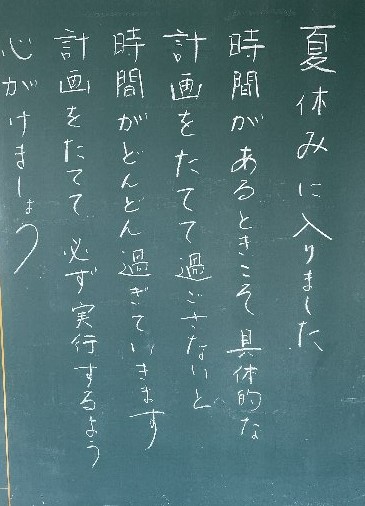 夏休みに入りました
時間があるときこそ具体的な
計画をたてて過ごさないと
時間がどんどん過ぎていきます
計画をたてて 必ず実行するよう
心がけましょう